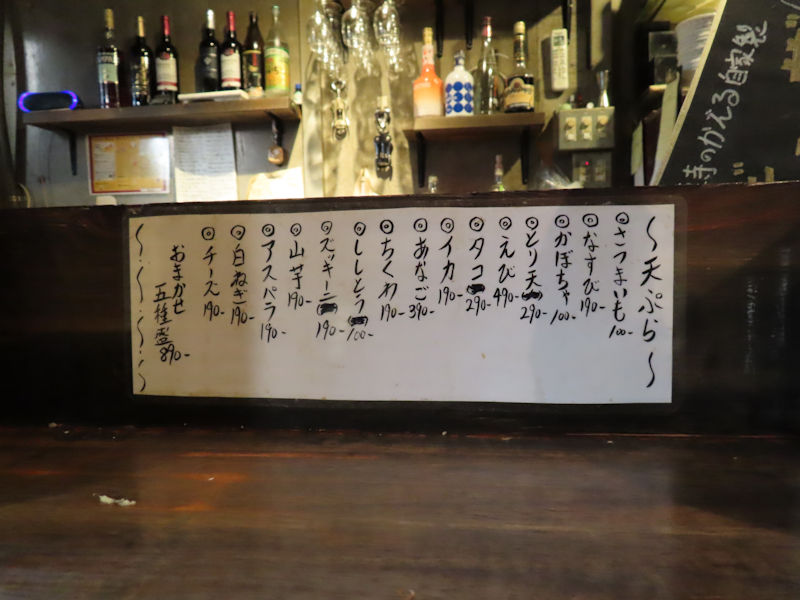 〜天ぷら〜
◎さつまいも 100-
◎なすび 190-
◎かぼちゃ 100-
◎とり天 290-
◎えび 490-
◎タコ 290-
◎イカ 190-
◎あなご 390-
◎ちくわ 190-
◎ししとう 100-
◎ズッキーニ 190-
◎山芋 190-
◎アスパラ 190-
◎白ねぎ 190-
◎チーズ 190-
おまかせ
五種盛 890-
寺のかえる自家製